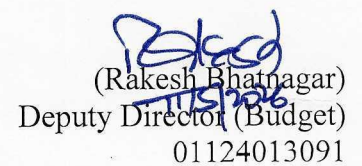 (Rakesh Bhatnagar)
Deputy Director (Budget)
01124013091